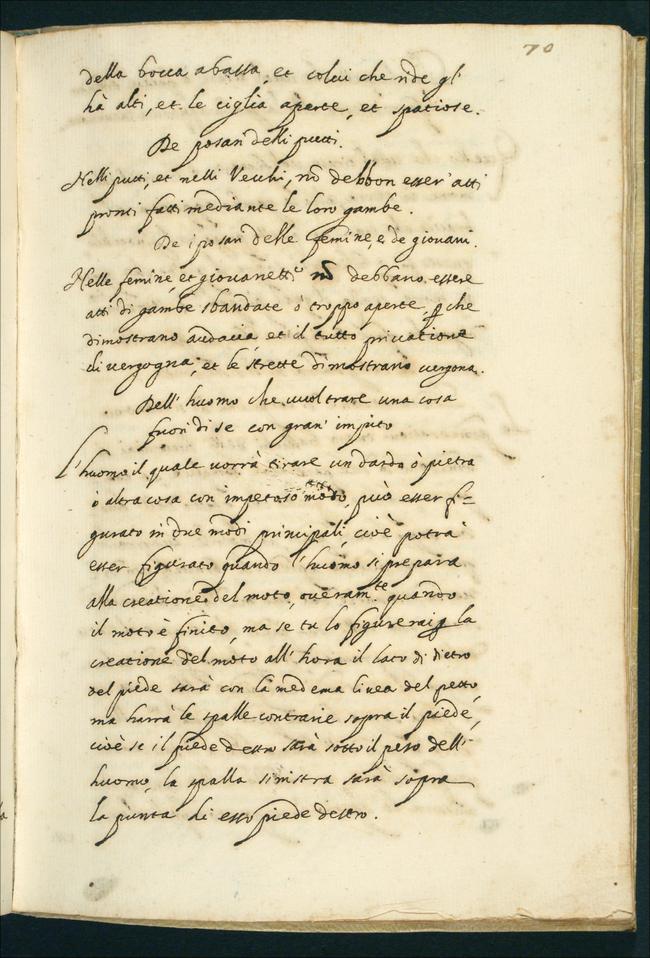 70
della bocca abassa, et colui che ride gl'
hà alti, et le ciglia aperte, et spatiose.
De posari delli putti.
Nelli putti, et nelli Vecchi, nõ debbon esser' atti
pronti fatti mediante le loro gambe.
De i posari delle femine, e de giovani.
Nelle femine, et giovanetti nõ debbano essere
atti di gambe sbandate ò troppo aperte, ꝑ che
dimostrano audacia, et il tutto privatione
di vergogna, et le strette dimostrano vergona.
Dell' huomo che vuol trare una cosa
fuori di se con gran' imputo.
L'huomo il quale vorrà tirare un dardo ò pietra
ò altra cosa con impetoso modo, può esser fi=
gurato in due modi principali, cioè potrà
esser figurato quando l'huomo si prepara
alla creatione del moto, overam.te quando
il moto è finito, ma se tu lo figurerai ꝑ la
creatione del moto all' hora il lato di dietro
del piede sarà con la medema linea del petto,
ma harrà le spalle contrarie sopra il piede,
cioè se il piede destro sarà sotto il peso dell'
huomo, la spalla sinistra sarà sopra
la punta di esso piede destro.